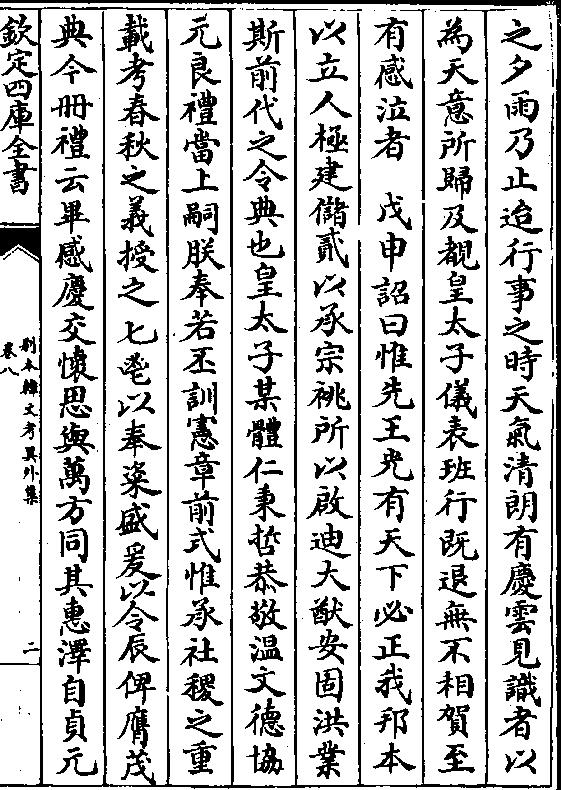 之夕雨乃止迨行事之時天氣清朗有慶雲見識者以
為天意所歸及覩皇太子儀表班行既退無不相賀至
有感泣者　戊申詔曰惟先王光有天下必正我邦本
以立人極建儲貳以承宗祧所以啟迪大猷安固洪業
斯前代之令典也皇太子某體仁秉哲恭敬溫文德協
元良禮當上嗣朕奉若丕訓憲章前式惟承社稷之重
載考春秋之義授之匕鬯以奉粢盛爰以令辰俾膺茂
典今冊禮云畢感慶交懷思與萬方同其惠澤自貞元
欽定四庫全書
别本韓文考異外集
卷八
二